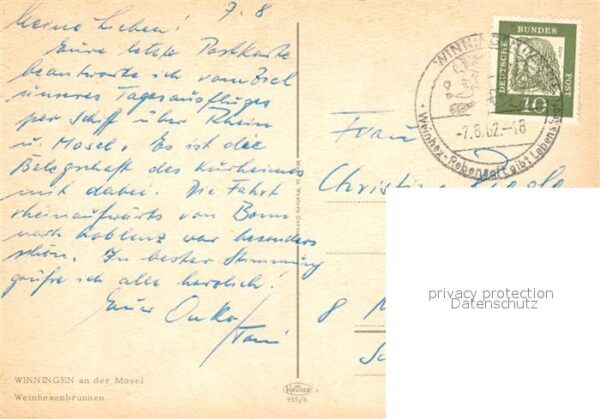 7.8
Meine Lieben!
Eure letzte Postkarte
beantworte ich vom Ziel
unseres Tagesausfluges
per Schiff über Rhein
u. Mosel. Es ist die
Belegschaft des Kurheimes
mit dabei. Die Fahrt
rheinaufwärts von Bonn
nach Koblenz war besonders
schön. In bester Stimmung
grüße ich alle herzlich!
Euer Onkel
Toni
WINNINGEN an der Mosel
Weinhexenbrunnen
KRÜGER
955/6
WINNINGEN
-7.8.62.-18
Weinhex-Rebensaft gibt Lebens
DEUTSCHE BUNDES POST
10
Frau
Christine
8 M
privacy protection
Datenschutz